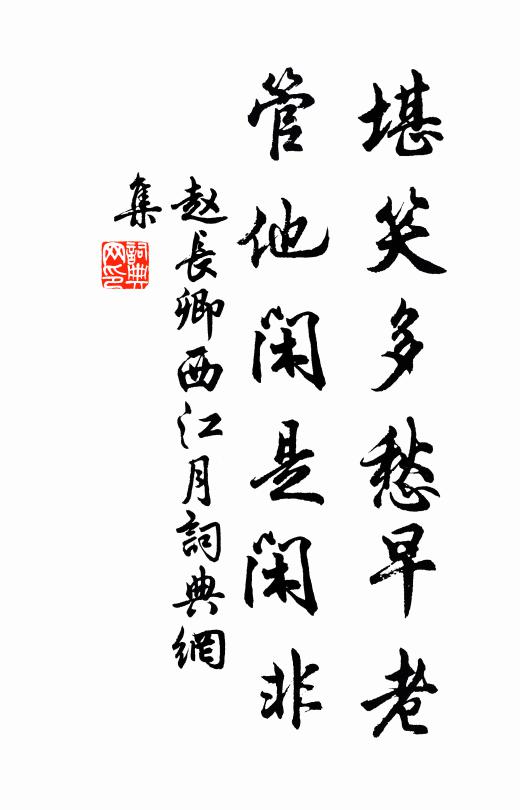 堪笑多愁早老
管他闲是闲非
赵長卿西江月詞典網
集
詞典網印